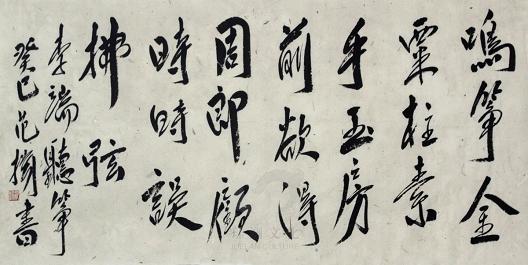 鳴箏金
粟柱素
手玉房
前欲得
周郎顧
時時誤
拂弦
李端聽箏
癸巳范搢書